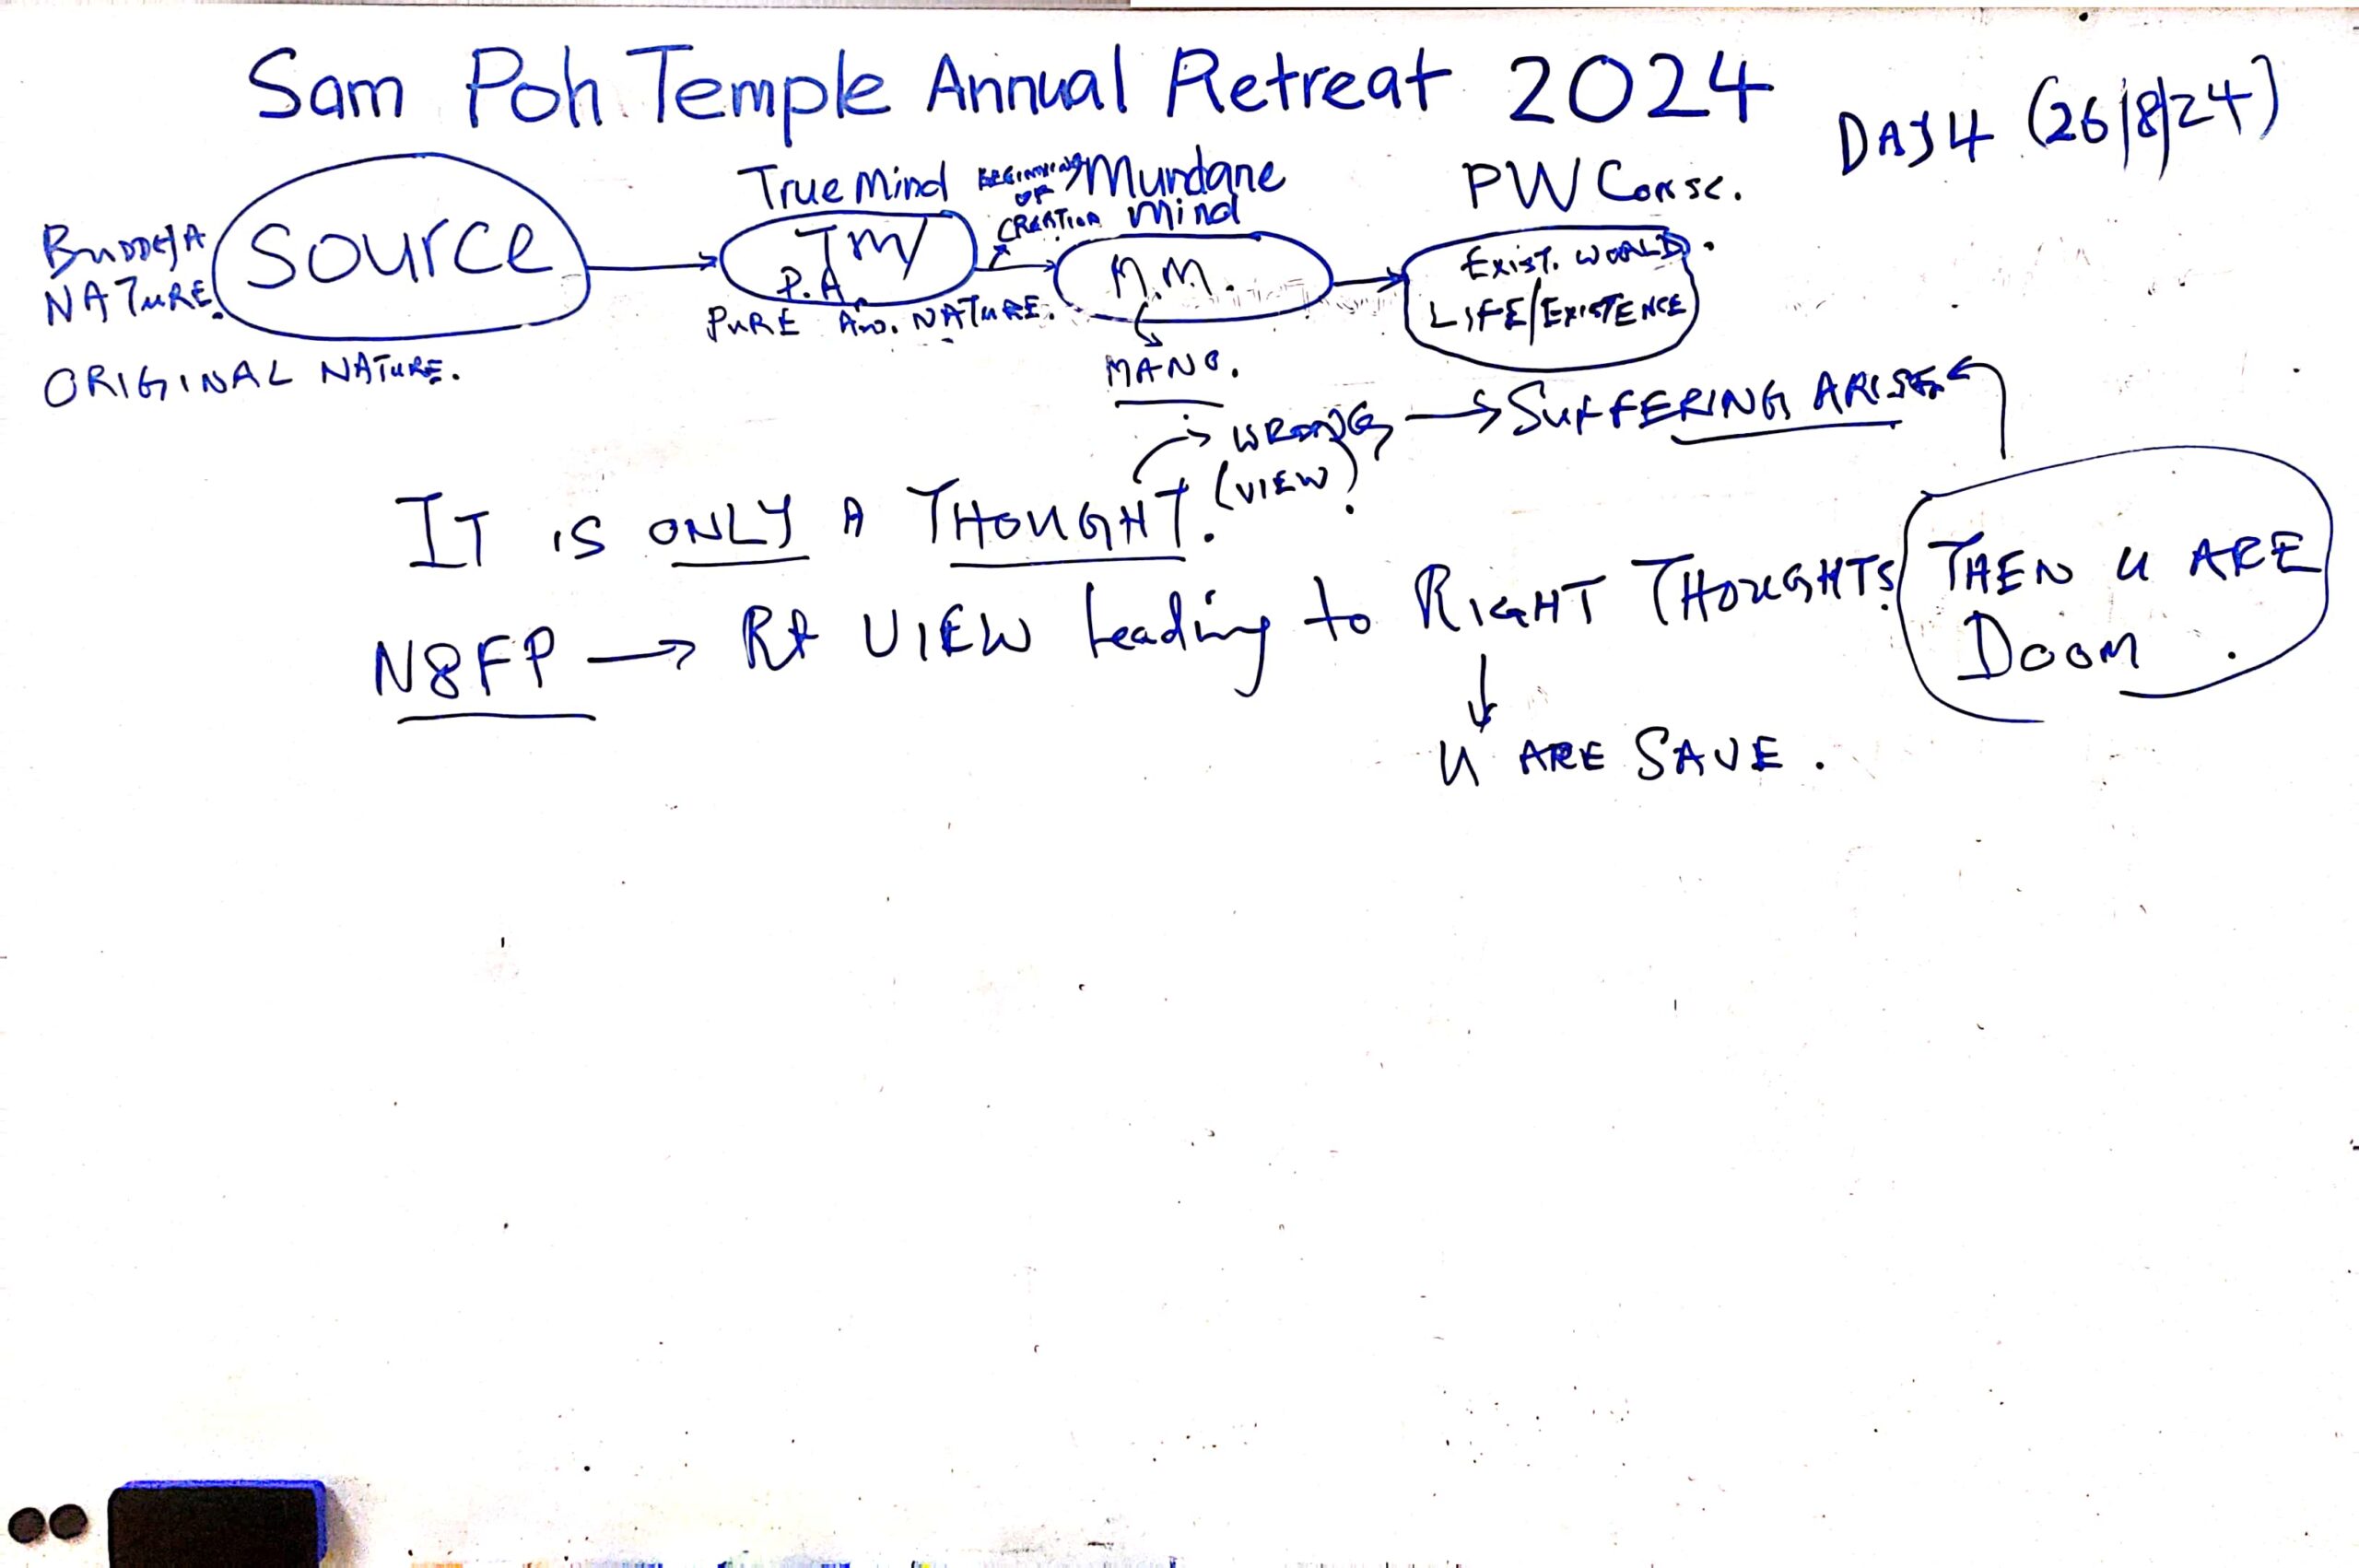 Sam Poh Temple Annual Retreat 2024
DAY 4 (26/8/24)
True Mind
BEGINNING OF CREATION
Mundane Mind
PW Consc.
BUDDHA NATURE.
Source
TM/
P.A.
M.M.
EXIST. WORLD.
LIFE/EXISTENCE
PURE AW. NATURE.
ORIGINAL NATURE.
MANO.
WRONG → SUFFERING ARISE
(VIEW).
IT IS ONLY A THOUGHT.
N8FP → Rt VIEW Leading to RIGHT THOUGHTS.
THEN U ARE
DOOM.
U ARE SAVE.